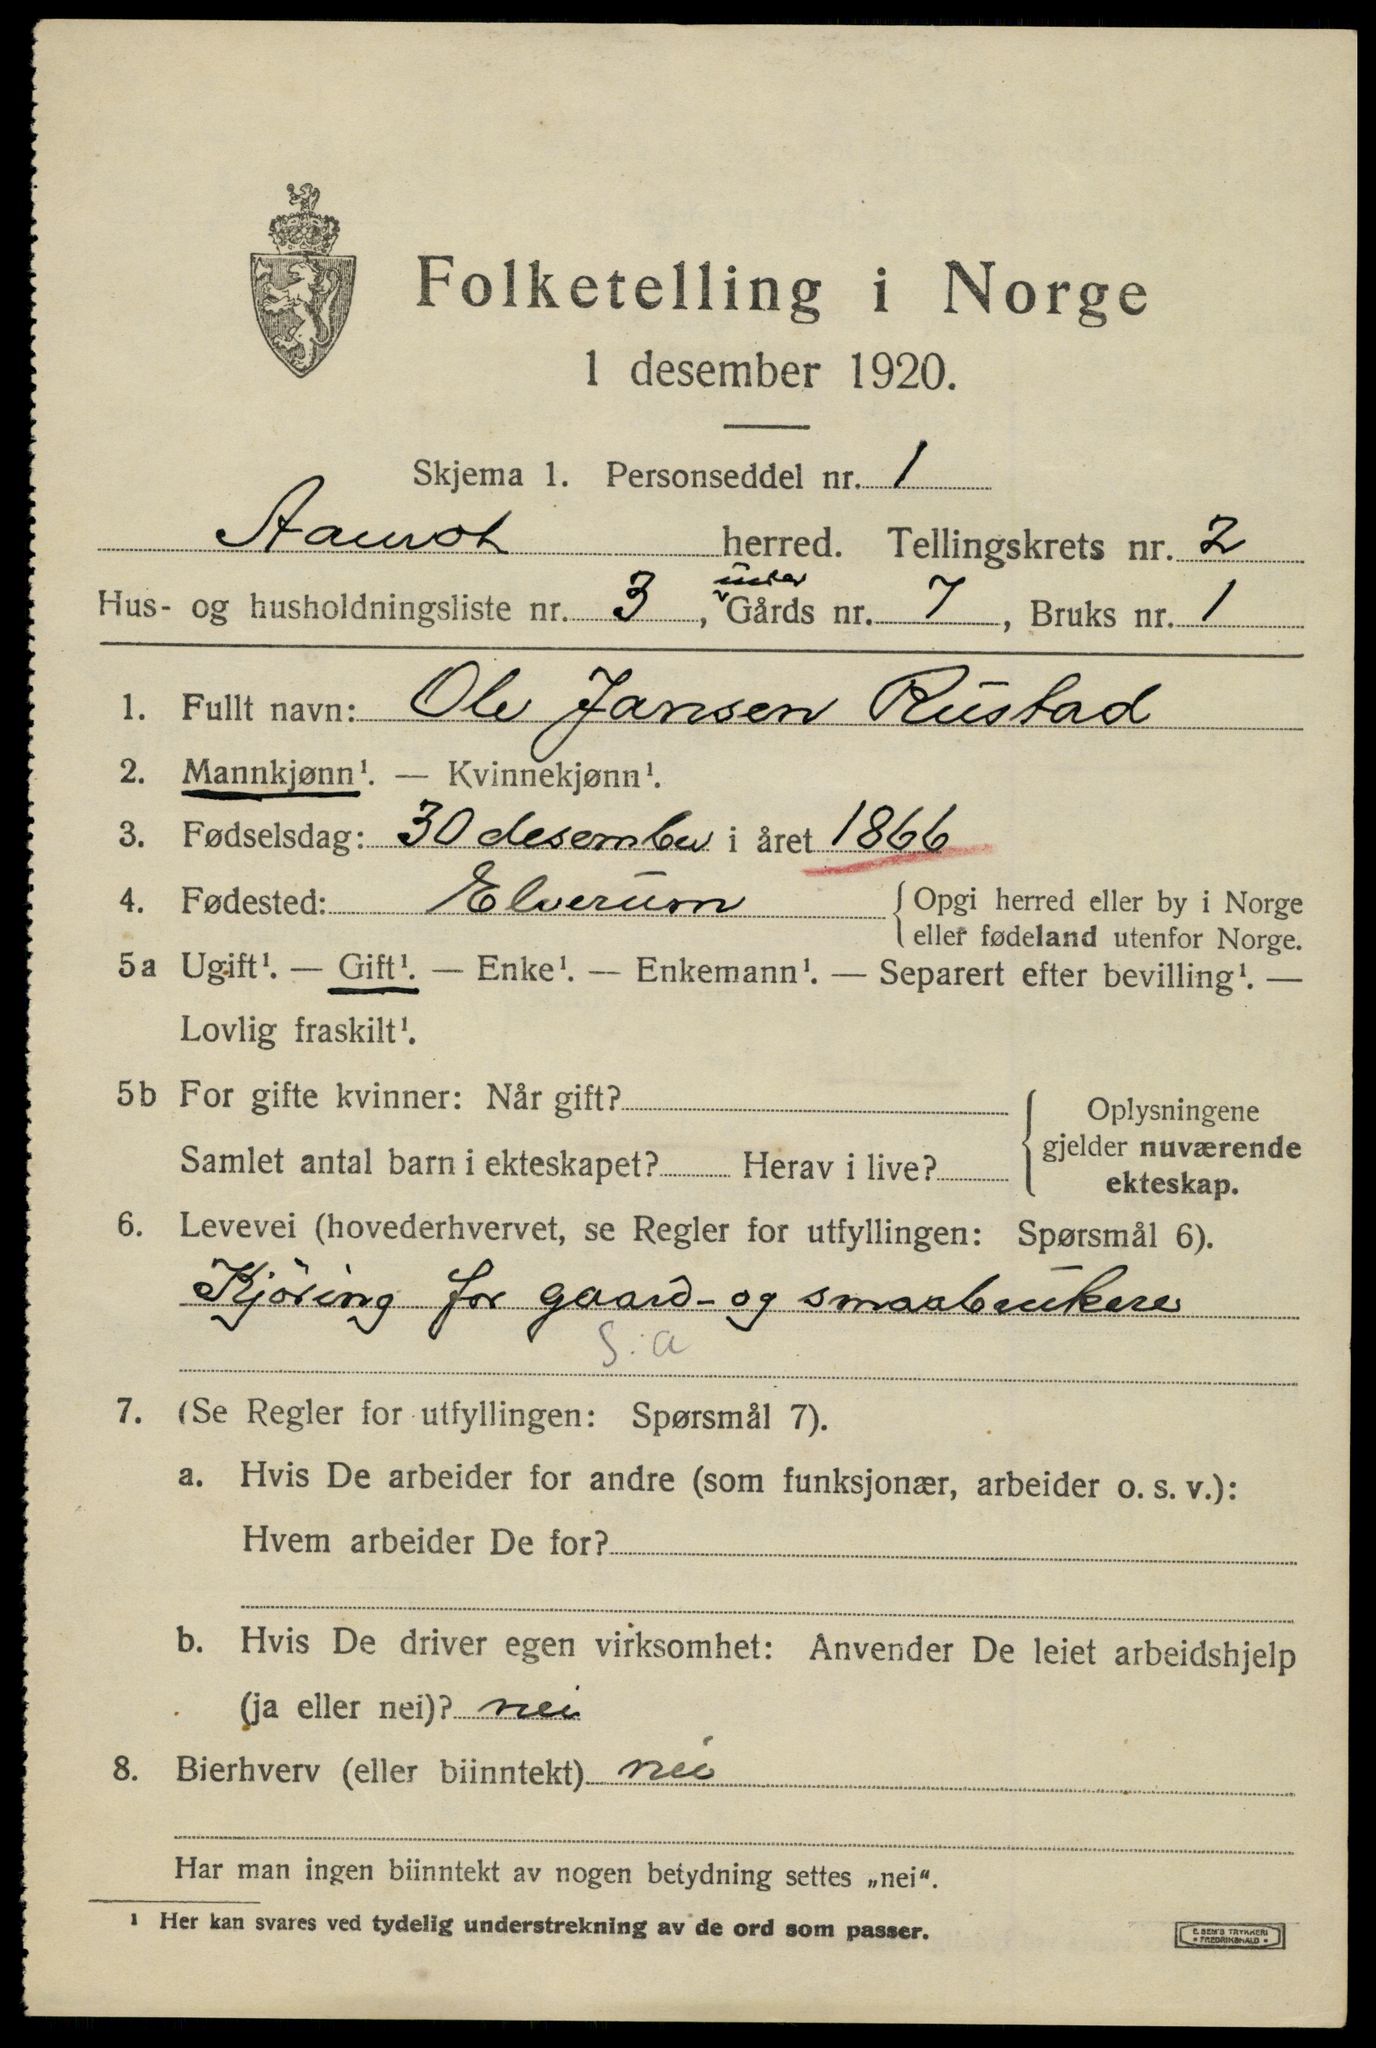 Folketelling i Norge
1 desember 1920.
Skjema 1. Personseddel nr. 1
Aamot herred. Tellingskrets nr. 2
Hus- og husholdningsliste nr. 3, under Gårds nr. 7, Bruks nr. 1
1. Fullt navn: Ole Jansen Rustad
2. Mannkjønn¹. — Kvinnekjønn¹.
3. Fødselsdag: 30 desember i året 1866
4. Fødested: Elverum { Opgi herred eller by i Norge
eller fødeland utenfor Norge.
5a Ugift¹. — Gift¹. — Enke¹. — Enkemann¹. — Separert efter bevilling¹. —
Lovlig fraskilt¹.
5b For gifte kvinner: Når gift?
Samlet antal barn i ekteskapet? Herav i live?
Oplysningene
gjelder nuværende
ekteskap.
6. Levevei (hovederhvervet, se Regler for utfyllingen: Spørsmål 6).
Kjöring for gaard- og smaabrukere
S:a
7. (Se Regler for utfyllingen: Spørsmål 7).
a. Hvis De arbeider for andre (som funksjonær, arbeider o. s. v.):
Hvem arbeider De for?
b. Hvis De driver egen virksomhet: Anvender De leiet arbeidshjelp
(ja eller nei)? nei
8. Bierhverv (eller biinntekt) nei
Har man ingen biinntekt av nogen betydning settes „nei“.
¹ Her kan svares ved tydelig understrekning av de ord som passer.
E. SEM'S TRYKKERI
• FREDRIKSHALD •